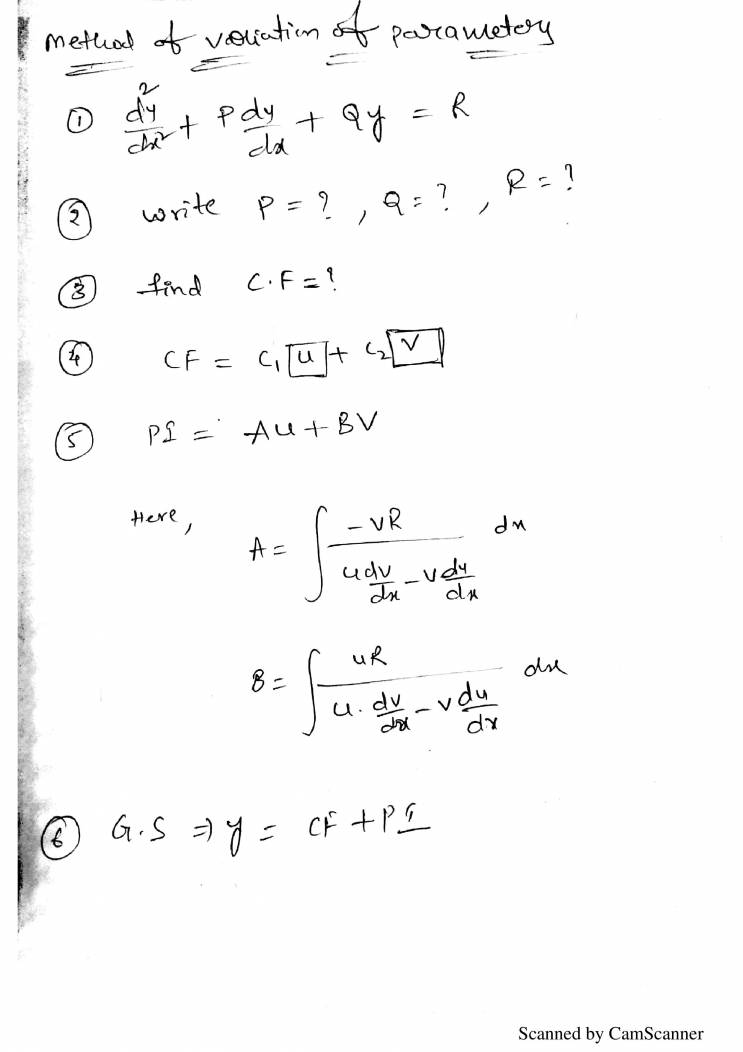 Method of variation of parameters
① d²y/dx² + P dy/dx + Qy = R
② write P = ? , Q = ? , R = ?
③ find C.F = ?
④ CF = C₁ u + C₂ V
⑤ PI = Au + BV
Here, A = ∫ -VR / (u dv/dx - v du/dx) dx
B = ∫ uR / (u. dv/dx - v du/dx) dx
⑥ G.S ⇒ y = CF + PI
Scanned by CamScanner